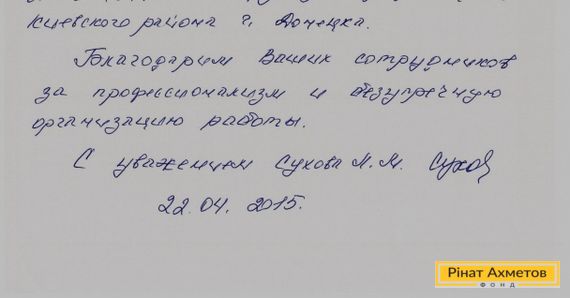 Киевского района г. Донецка.
Благодарим Ваших сотрудников
за профессионализм и безупречную
организацию работы.
С уважением Сухова М.М. Сухов
22.04. 2015.
Рінат Ахметов
ФОНД